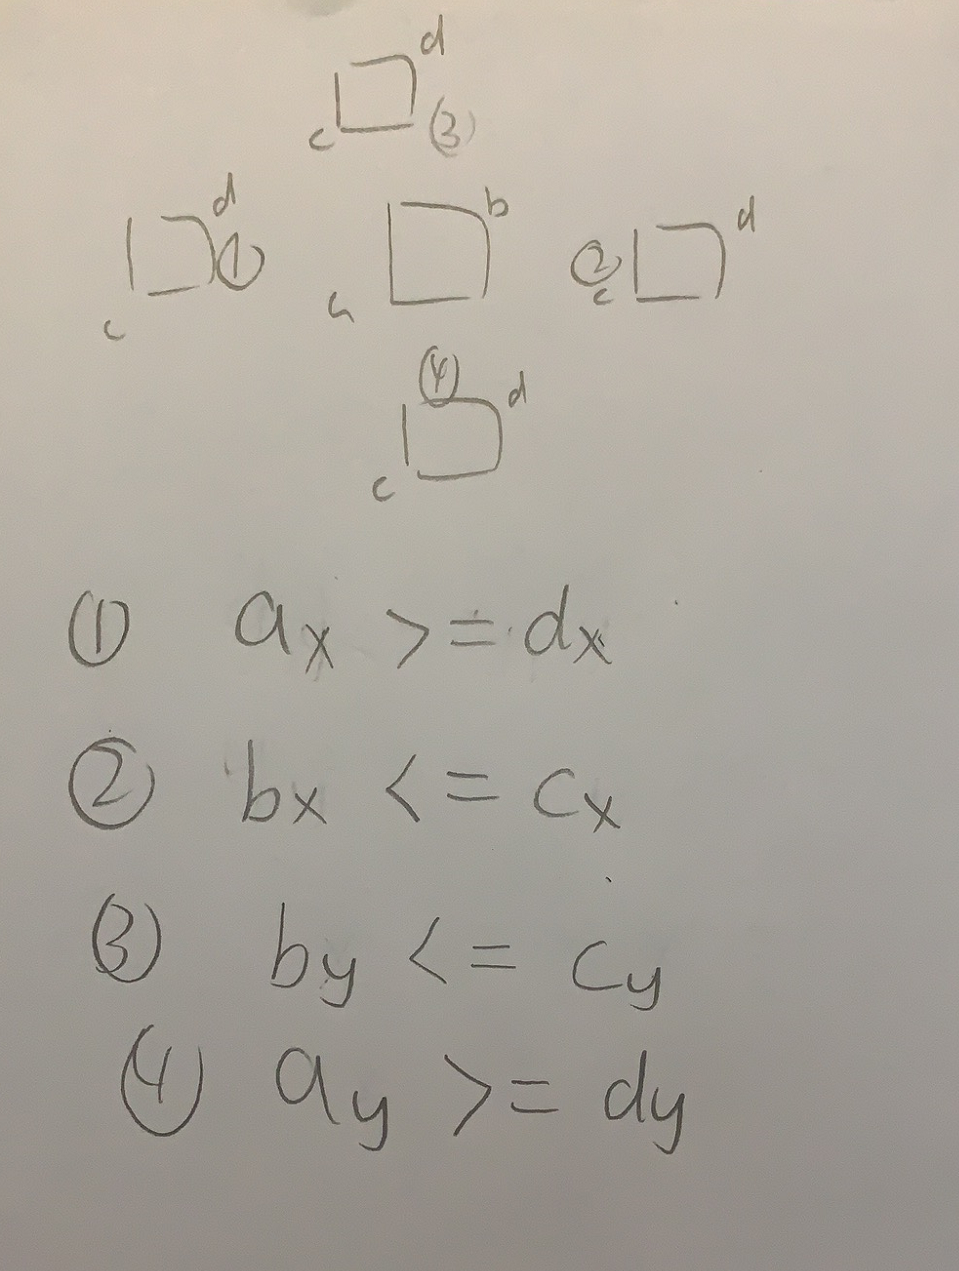 d
c (3)
d b d
① ②
a c
c
④ d
c
① ax >= dx
② bx <= cx
③ by <= cy
④ ay >= dy